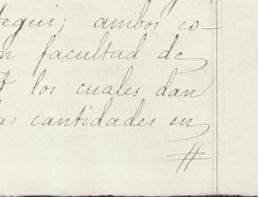 tegui; ambos co-
n facultad de
los cuales dan
as cantidades en